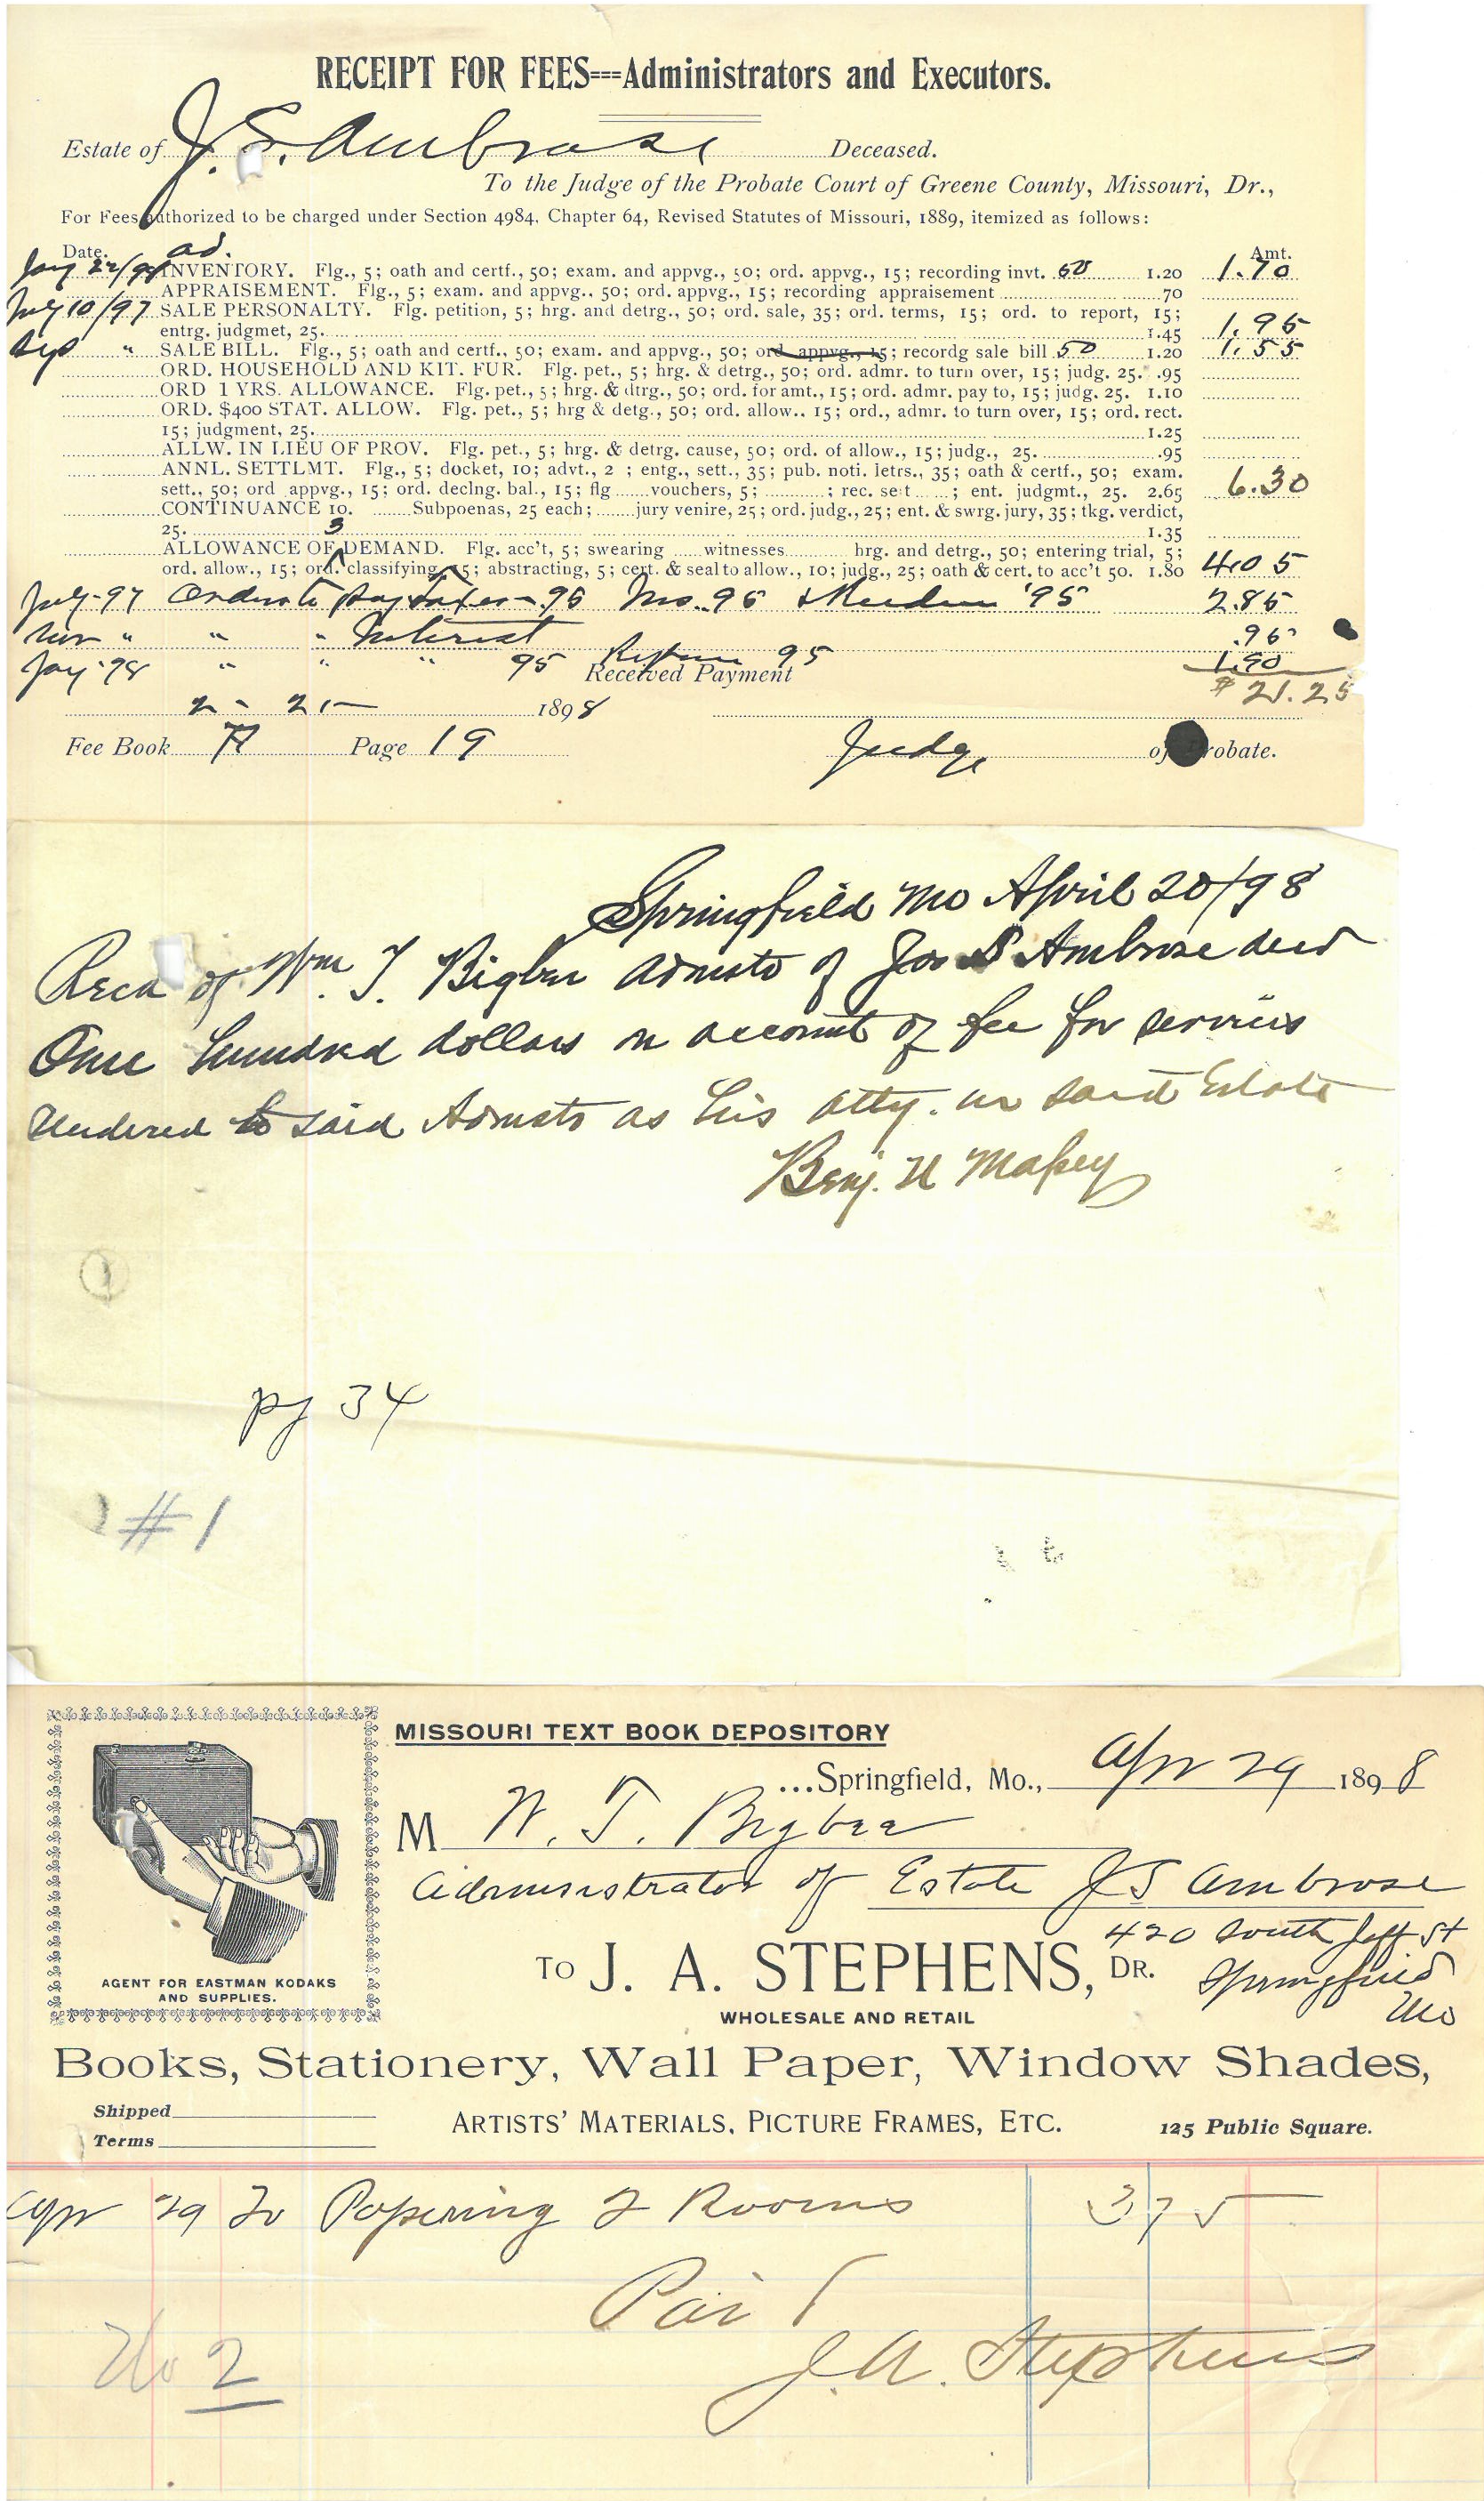 RECEIPT FOR FEES===Administrators and Executors.
Estate of J. S. Ambrose Deceased.
To the Judge of the Probate Court of Greene County, Missouri, Dr.,
For Fees authorized to be charged under Section 4984, Chapter 64, Revised Statutes of Missouri, 1889, itemized as follows:
Date. ad. Amt.
INVENTORY. Flg., 5; oath and certf., 50; exam. and appvg., 50; ord. appvg., 15; recording invt. 50 1.20 1.70
APPRAISEMENT. Flg., 5; exam. and appvg., 50; ord. appvg., 15; recording appraisement 70
July 10/97 SALE PERSONALTY. Flg. petition, 5; hrg. and detrg., 50; ord. sale, 35; ord. terms, 15; ord. to report, 15;
entrg. judgmet, 25. 1.45 1.95
Sep " SALE BILL. Flg., 5; oath and certf., 50; exam. and appvg., 50; ord. appvg., 15; recordg sale bill 50 1.20 1.55
ORD. HOUSEHOLD AND KIT. FUR. Flg. pet., 5; hrg. & detrg., 50; ord. admr. to turn over, 15; judg. 25. .95
ORD 1 YRS. ALLOWANCE. Flg. pet., 5; hrg. & dtrg., 50; ord. for amt., 15; ord. admr. pay to, 15; judg. 25. 1.10
ORD. $400 STAT. ALLOW. Flg. pet., 5; hrg & detg., 50; ord. allow.. 15; ord., admr. to turn over, 15; ord. rect.
15; judgment, 25. 1.25
ALLW. IN LIEU OF PROV. Flg. pet., 5; hrg. & detrg. cause, 50; ord. of allow., 15; judg., 25. .95
ANNL. SETTLMT. Flg., 5; docket, 10; advt., 2 ; entg., sett., 35; pub. noti. letrs., 35; oath & certf., 50; exam.
sett., 50; ord appvg., 15; ord. declng. bal., 15; flg vouchers, 5; ; rec. sett ; ent. judgmt., 25. 2.65 6.30
CONTINUANCE 10. Subpoenas, 25 each; jury venire, 25; ord. judg., 25; ent. & swrg. jury, 35; tkg. verdict,
25. 1.35
3
ALLOWANCE OF DEMAND. Flg. acc't, 5; swearing witnesses hrg. and detrg., 50; entering trial, 5;
ord. allow., 15; ord. classifying, 15; abstracting, 5; cert. & seal to allow., 10; judg., 25; oath & cert. to acc't 50. 1.80 4.05
July-97 Order to pay Taxes - 95 Ins. 95 '95 2.85
Nov " " " Interest .95
" " " 95 95 1.90
Received Payment $21.25
2 - 21- 1898
Fee Book A Page 19 Judge of Probate.
Springfield Mo April 20/98
Recd of Wm. T. Bigbee Admstr of Jos S Ambrose decd
One hundred dollars on account of fee for services
rendered to said Admstr as his atty. in said Estate
Benj. U Massey
pg 34
#1
MISSOURI TEXT BOOK DEPOSITORY
...Springfield, Mo., Apr 29 1898
M W. T. Bigbee
Administrator of Estate J S Ambrose
420 South Jeff St
Springfield
Mo
TO J. A. STEPHENS, DR.
AGENT FOR EASTMAN KODAKS
AND SUPPLIES.
WHOLESALE AND RETAIL
Books, Stationery, Wall Paper, Window Shades,
Shipped
Terms
ARTISTS' MATERIALS, PICTURE FRAMES, ETC. 125 Public Square.
Apr 29 To Papering 2 Rooms 3 75
Paid
J. A. Stephens
No 2